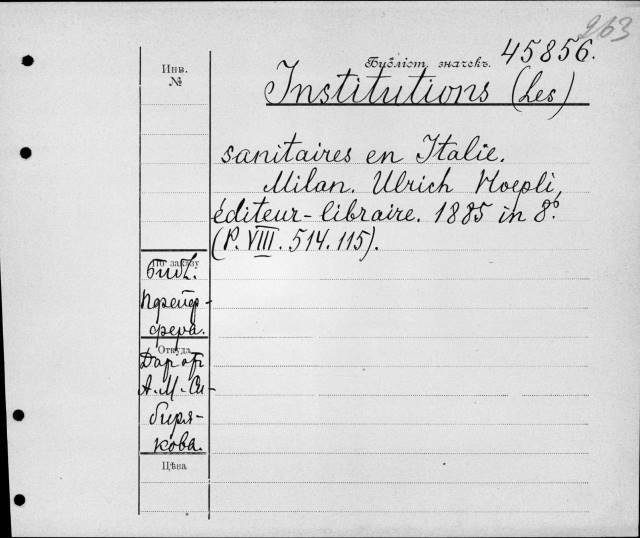 263
Библіот. значекъ. 45856.
Инв.
№
Institutions (Les)
sanitaires en Italie.
Milan. Ulrich Hoepli,
éditeur-libraire. 1885 in 8º.
(P. VIII. 514. 115).
По заказу
Библ.
Пфейф-
фера.
Откуда
Дар от
А. М. Си-
биря-
кова.
Цѣна